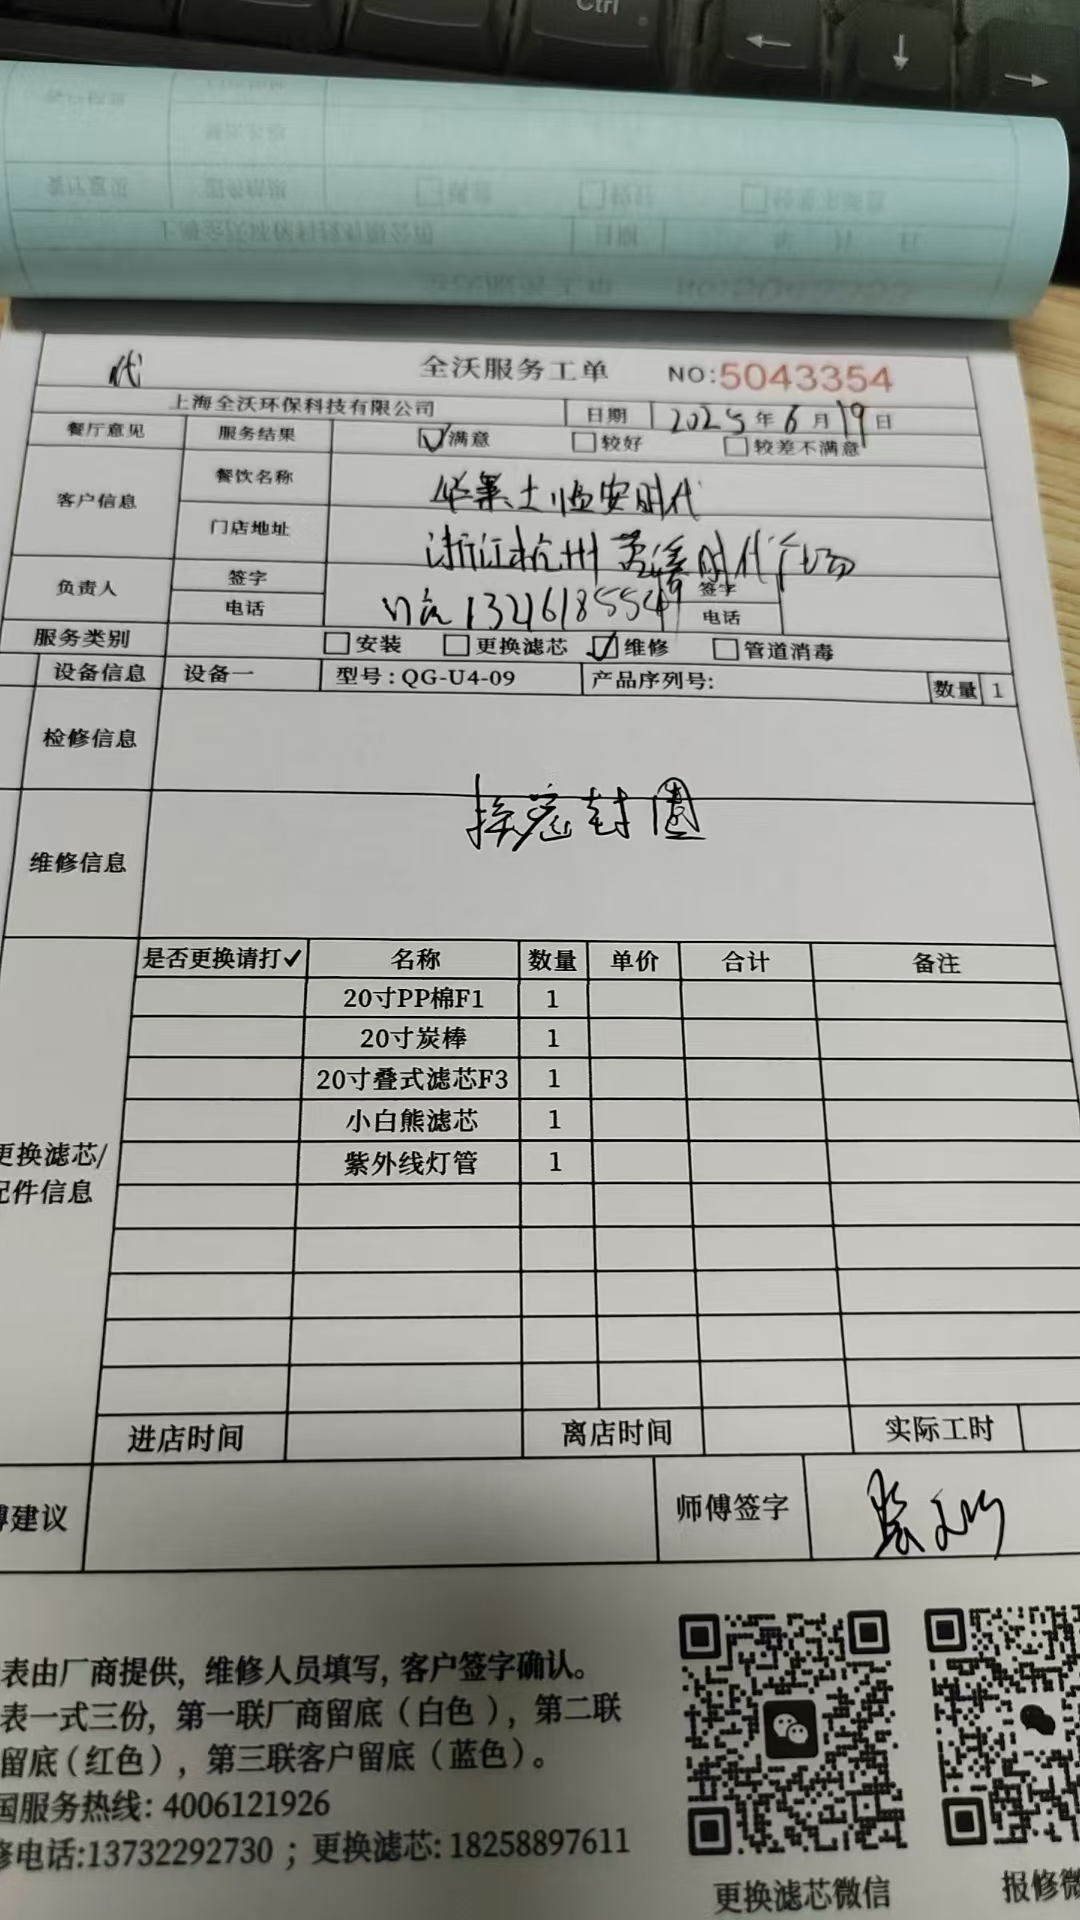 Ctrl
← ↓ →
代 全沃服务工单 NO:5043354
上海全沃环保科技有限公司 日期 2025年6月19日
餐厅意见 服务结果 ☑满意 □较好 □较差不满意
客户信息 餐饮名称 华莱士临安时代
门店地址 浙江杭州 时代广场
负责人 签字 签字
电话 1321618554 电话
服务类别 □安装 □更换滤芯 ☑维修 □管道消毒
设备信息 设备一 型号:QG-U4-09 产品序列号: 数量 1
检修信息
换密封圈
维修信息
是否更换请打✓ 名称 数量 单价 合计 备注
20寸PP棉F1 1
20寸炭棒 1
20寸叠式滤芯F3 1
小白熊滤芯 1
紫外线灯管 1
更换滤芯/
配件信息
进店时间 离店时间 实际工时
傅建议 师傅签字
表由厂商提供, 维修人员填写, 客户签字确认。
表一式三份, 第一联厂商留底(白色), 第二联
留底(红色), 第三联客户留底(蓝色)。
国服务热线: 4006121926
修电话:13732292730 ; 更换滤芯: 18258897611
更换滤芯微信 报修微